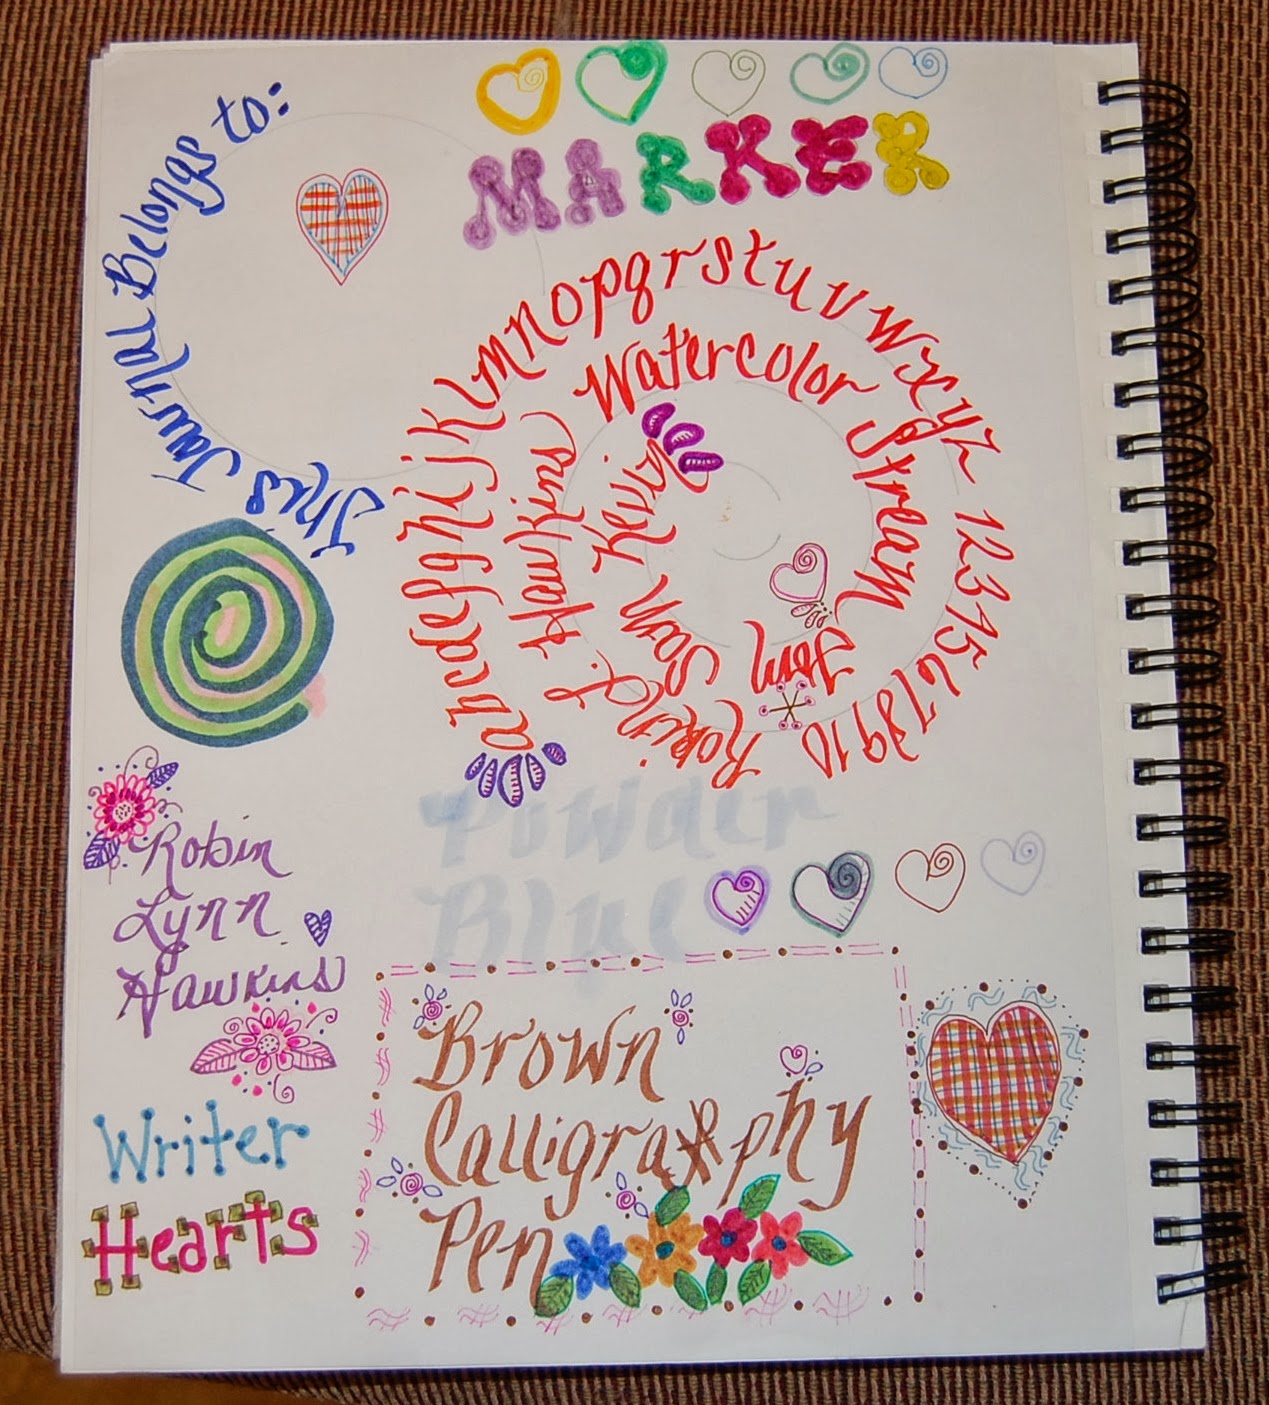 This Journal Belongs to:
MARKER
abcdefghijklmnopqrstuvwxyz 12345678910
Robin L. Hawkins Watercolor Stream
Tom Sam Kevin
Robin
Lynn
Hawkins
Powder
Blue
Brown
Calligraphy
Pen
Writer
Hearts